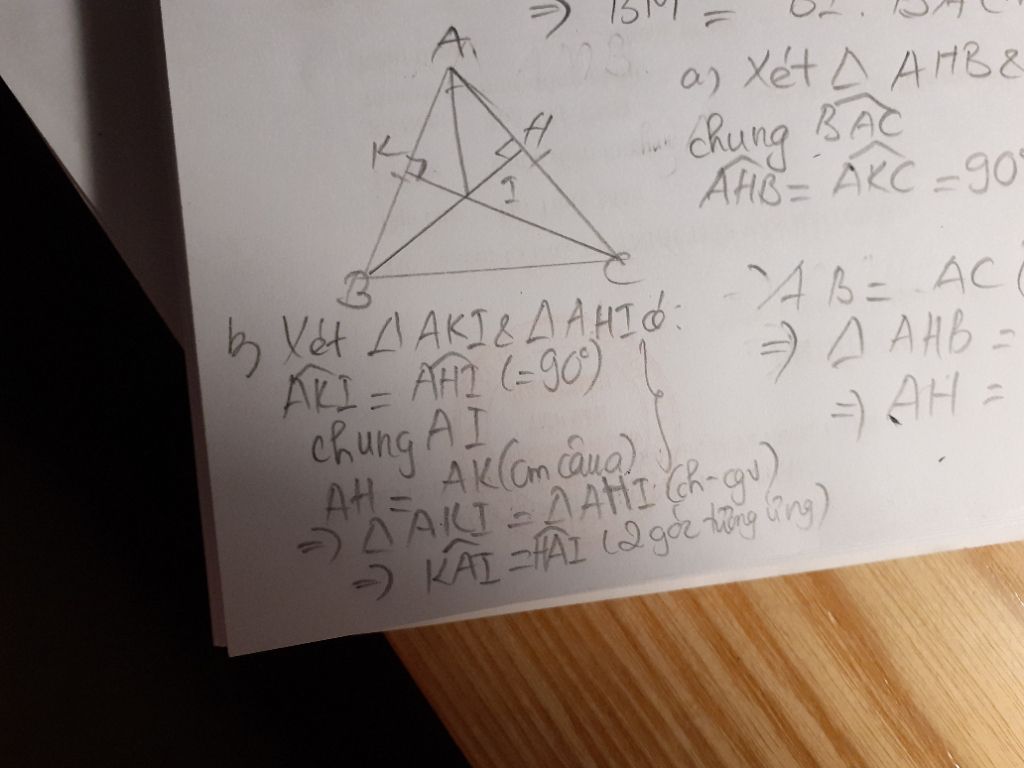 ⇒ BM = BI. BAC
A
K
H
I
B
C
a) Xét △ AHB &
chung \widehat{BAC}
\widehat{AHB} = \widehat{AKC} = 90°
AB = AC (
⇒ △ AHB =
⇒ AH =
b) Xét △ AKI & △ AHI có:
\widehat{AKI} = \widehat{AHI} (=90°)
chung AI
AH = AK (cm câu a)
⇒ △ AKI = △ AHI (ch-cgv)
⇒ \widehat{KAI} = \widehat{HAI} (2 góc tương ứng)